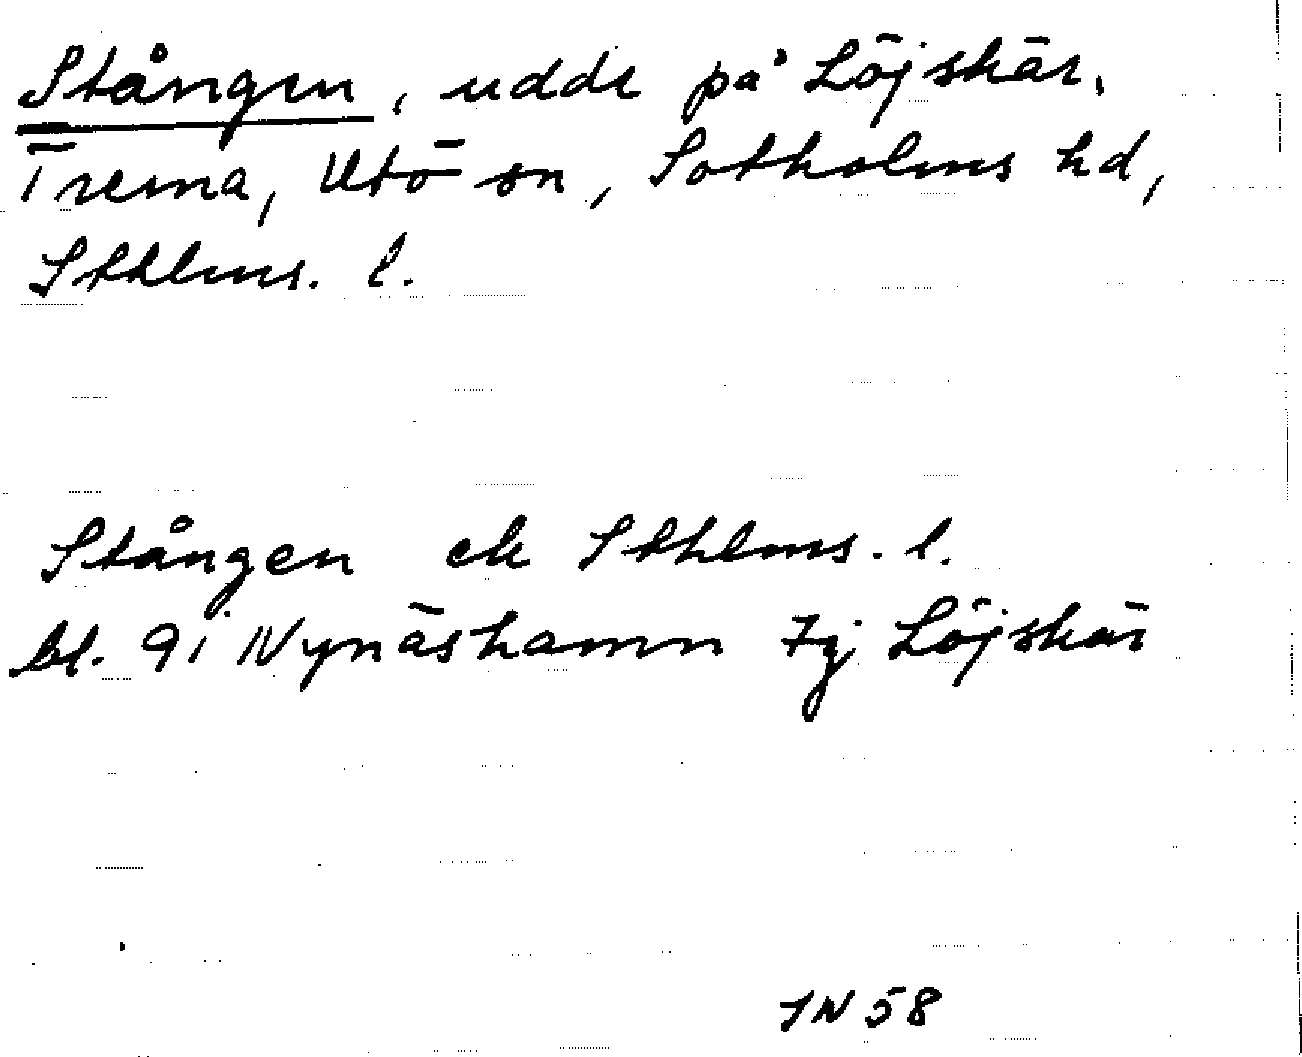 Stången, udde på Löjskär,
Träsna, Utö sn, Sotholms hd,
Sthlms. l.
Stången ek Sthlms. l.
bl. 9i Nynäshamn 7j Löjskär
IN 58